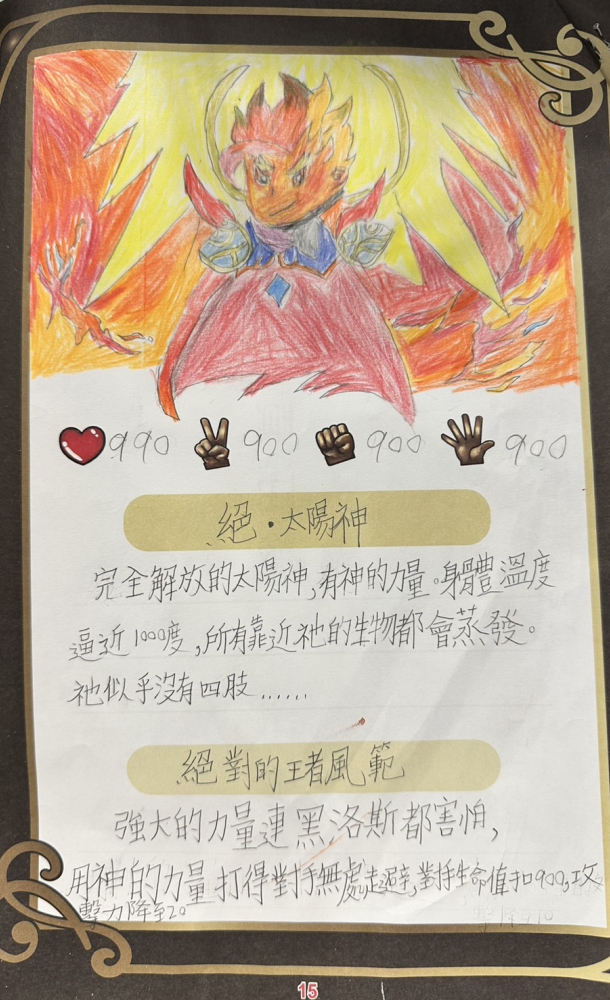 990 900 900 900
絕·太陽神
完全解放的太陽神,有神的力量。身體溫度
逼近1000度,所有靠近祂的生物都會蒸發。
祂似乎沒有四肢......
絕對的王者風範
強大的力量連黑洛斯都害怕,
用神的力量打得對手無處走避,對手生命值扣900,攻
擊力降至20
15